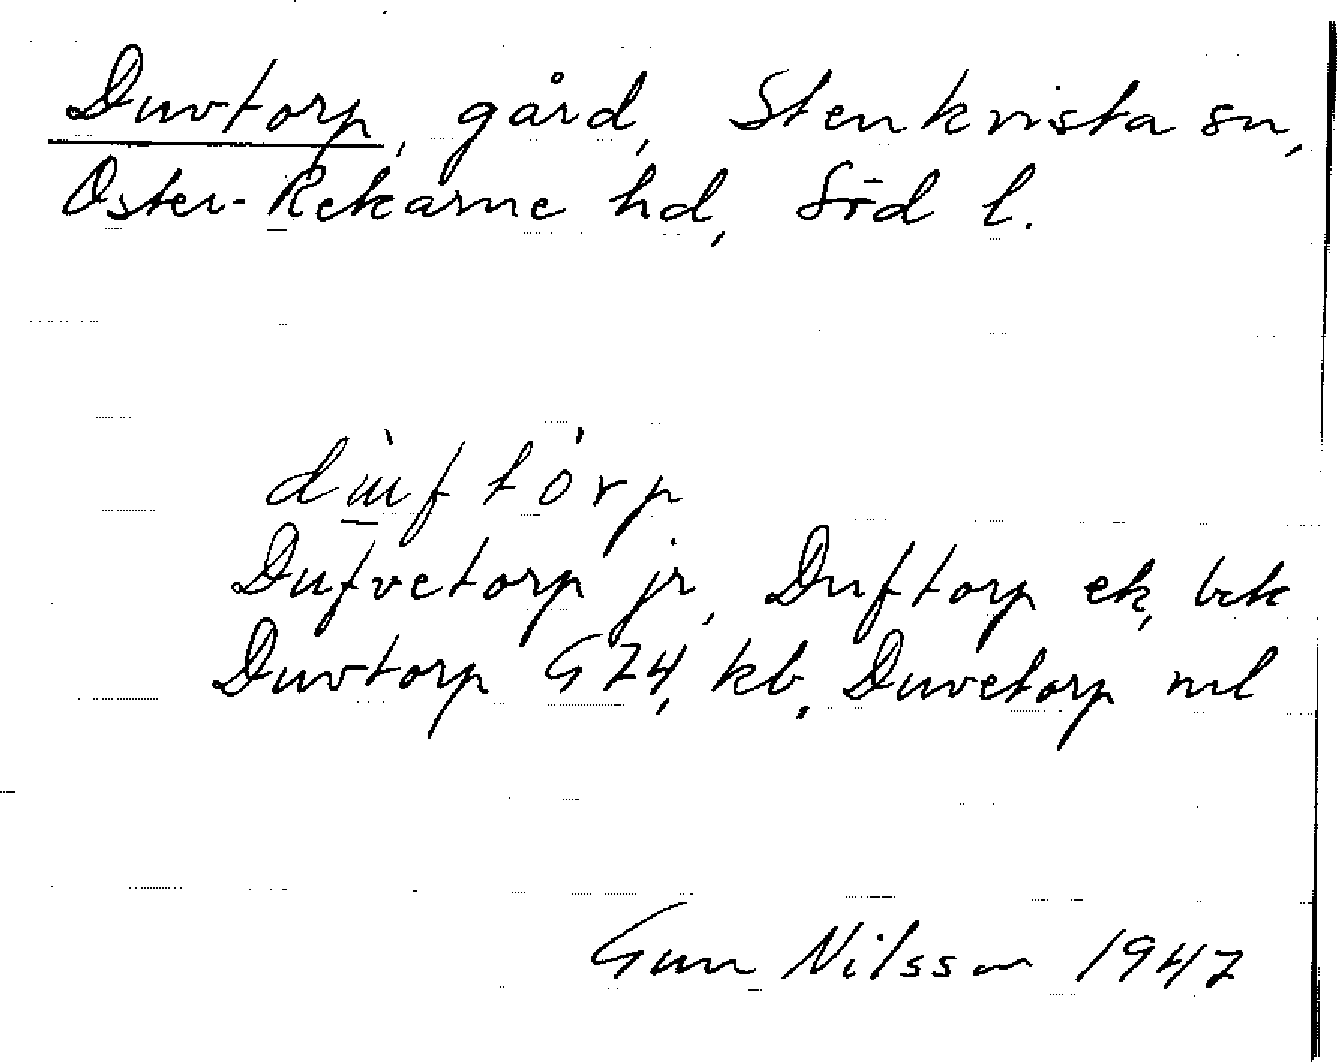 Duvtorp, gård, Stenkvista sn,
Öster-Rekarne hd, Söd l.
dùftórp
Dufvetorp jr, Duftorp ek, bck
Duvtorp G74, kb, Duvetorp ml
Gun Nilsson 1947